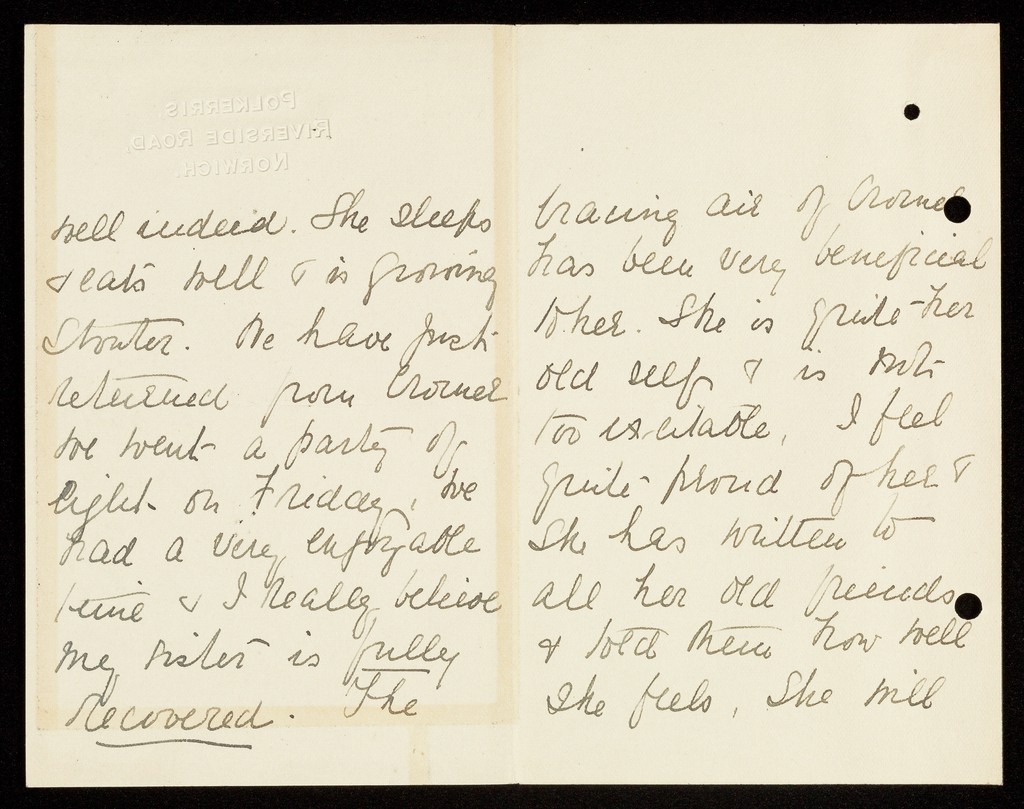 POLKERRIS,
RIVERSIDE ROAD,
NORWICH.
well indeed. She sleeps
& eats well & is growing
Stouter. We have just
returned from Cromer
we went a party of
eight on Friday, we
had a very enjoyable
time & I really believe
my sister is fully
recovered. The
bracing air of Cromer
has been very beneficial
to her. She is quite her
old self & is not
too excitable, I feel
quite proud of her &
She has written to
all her old friends
& told them how well
she feels, She will